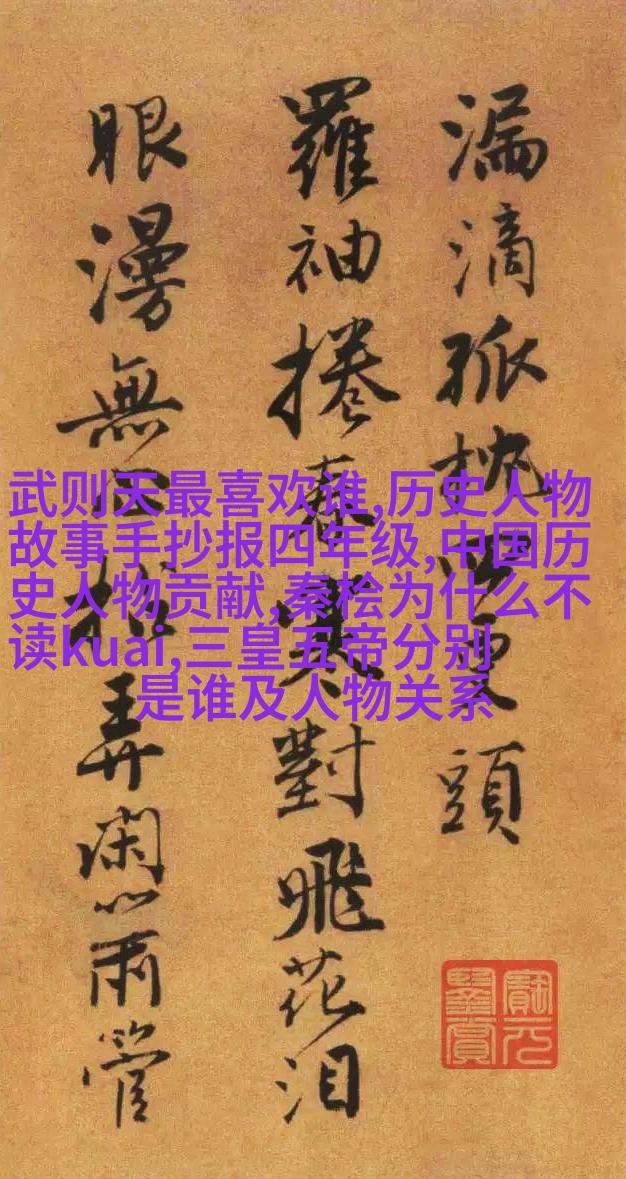 漏滴孤枕更頭
羅袖捲春寒對飛花泪
眼漫無弄閑心管
武则天最喜欢谁,历史人物
故事手抄报四年级,中国历
史人物贡献,秦桧为什么不
读kuai,三皇五帝分别
是谁及人物关系